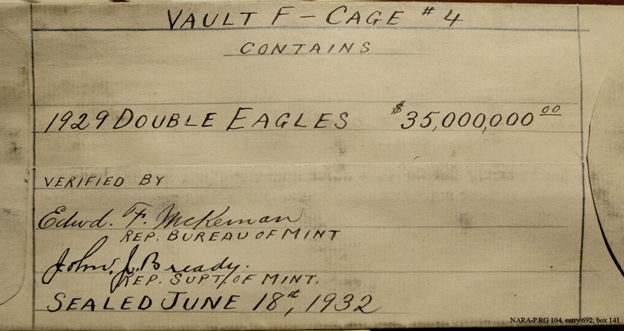 VAULT F - CAGE # 4
CONTAINS
1929 DOUBLE EAGLES $35,000,000.00
VERIFIED BY
Edwd. F. McKernan
REP. BUREAU OF MINT
John J. Bready.
REP. SUPT. OF MINT.
SEALED JUNE 18th, 1932
NARA-P RG 104, entry 692, box 141